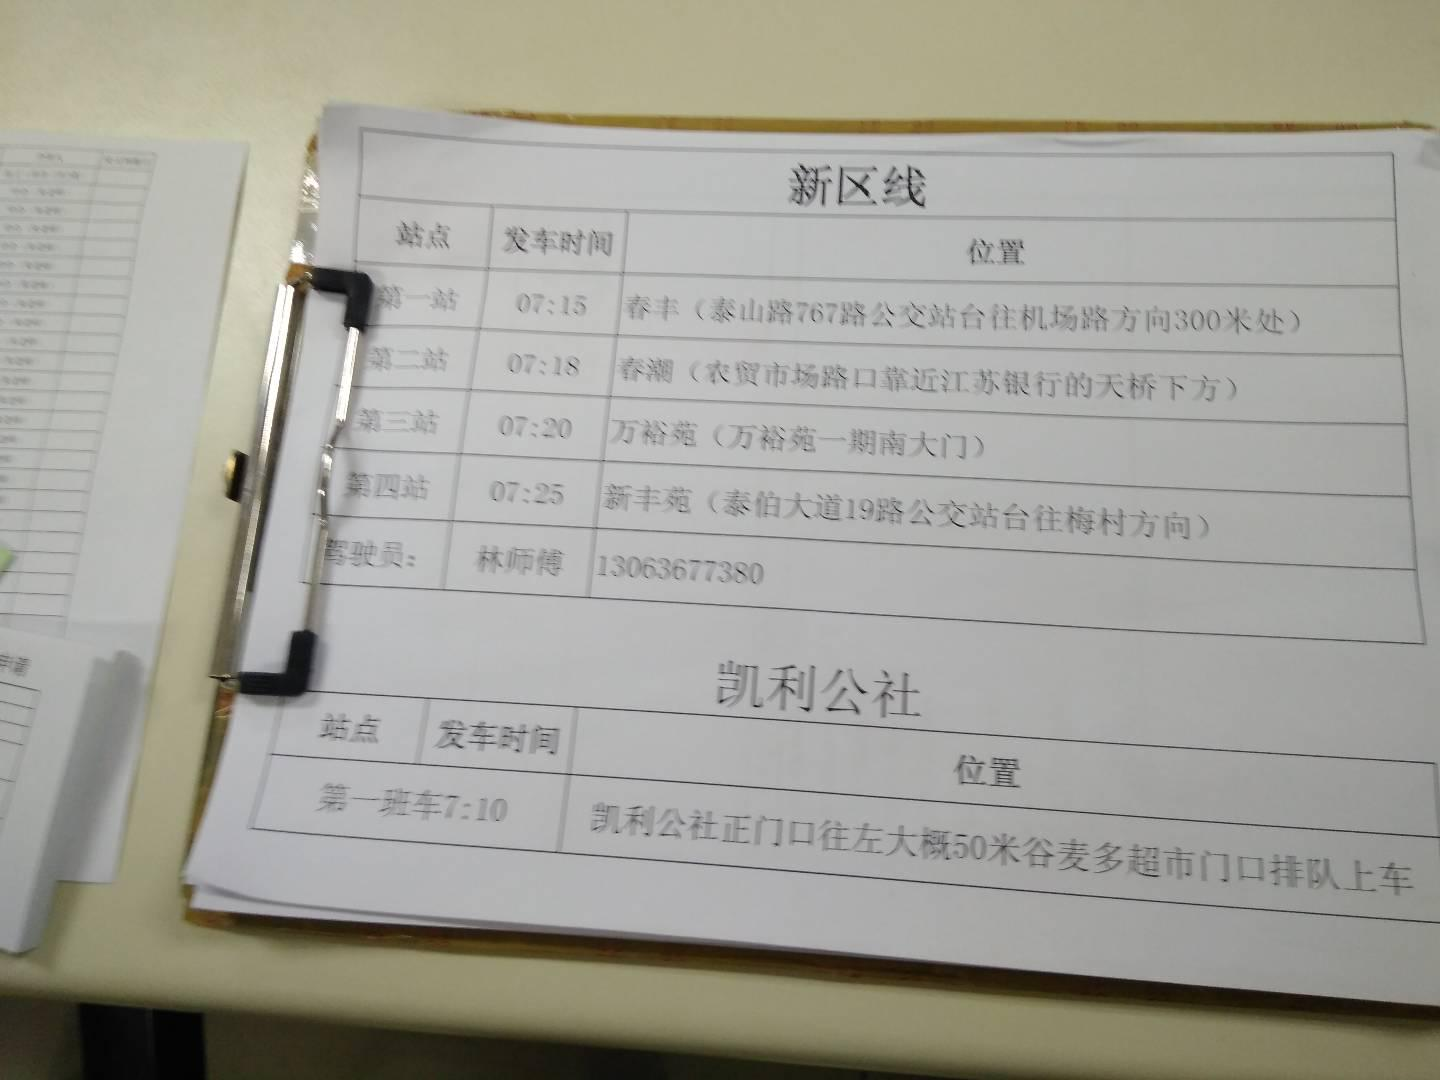 新区线
站点 发车时间 位置
第一站 07:15 春丰（泰山路767路公交站台往机场路方向300米处）
第二站 07:18 春潮（农贸市场路口靠近江苏银行的天桥下方）
第三站 07:20 万裕苑（万裕苑一期南大门）
第四站 07:25 新丰苑（泰伯大道19路公交站台往梅村方向）
驾驶员： 林师傅 13063677380
凯利公社
站点 发车时间 位置
第一班车7:10 凯利公社正门口往左大概50米谷麦多超市门口排队上车
申请